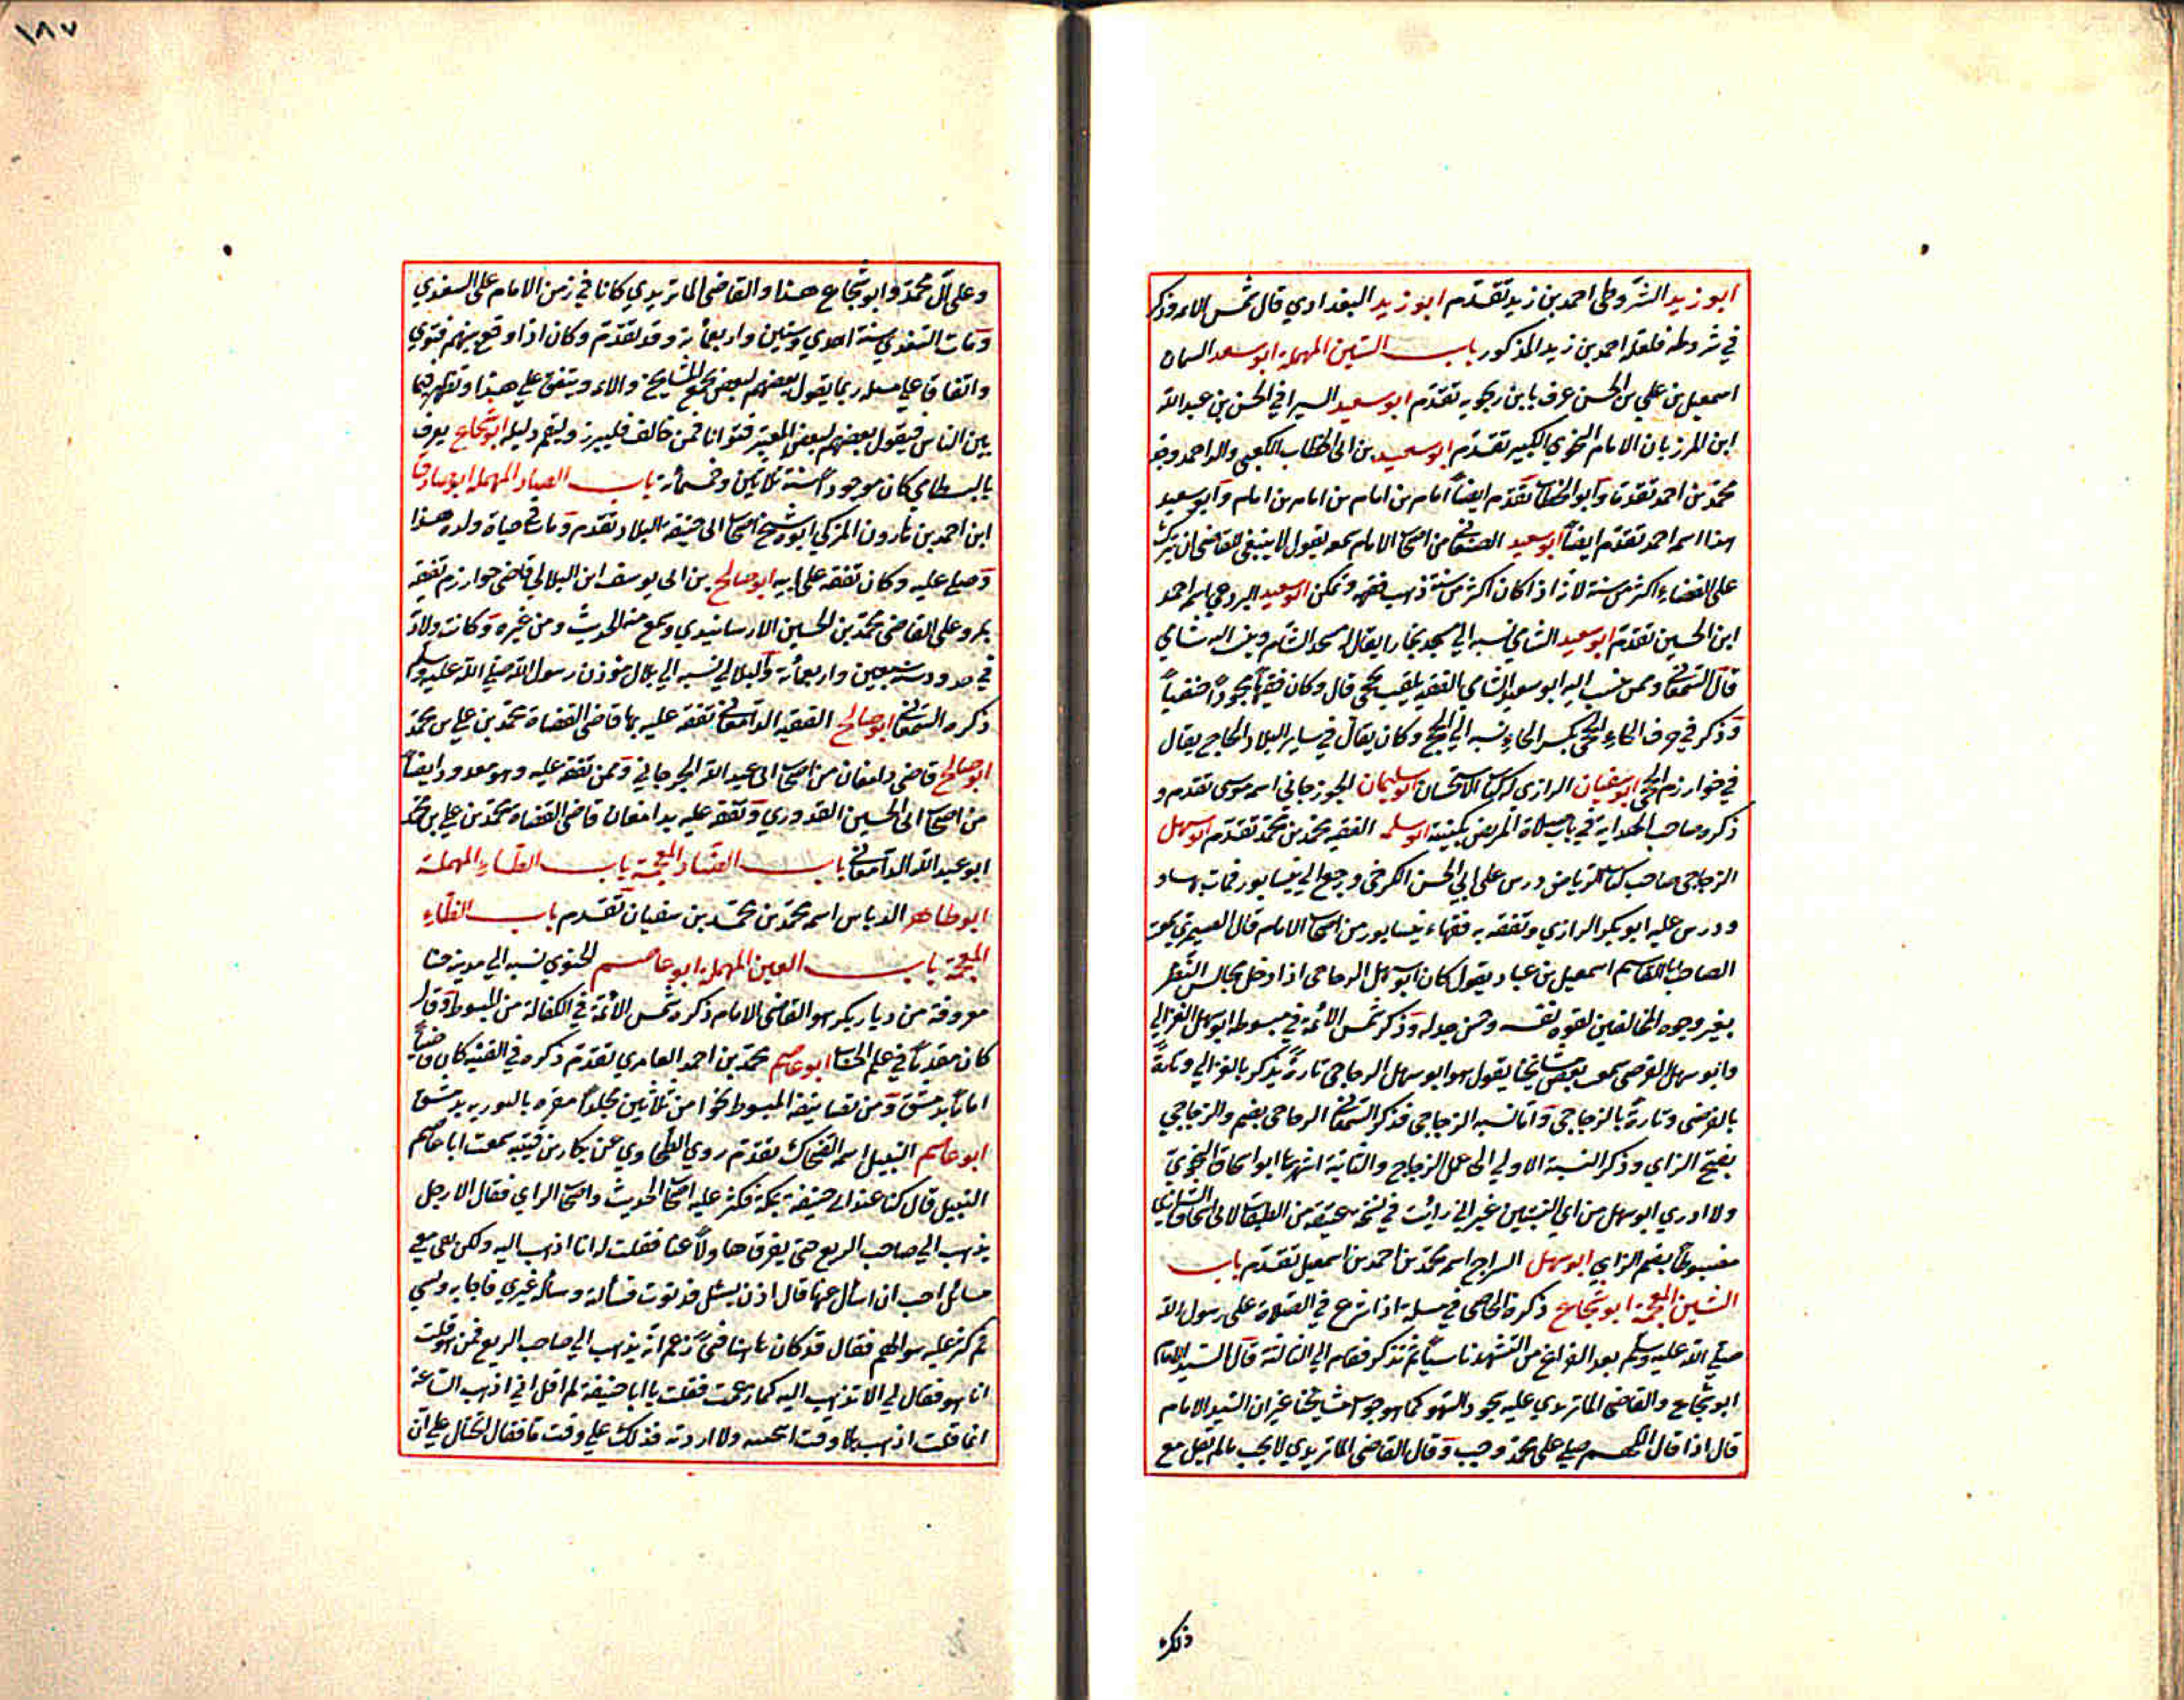 ابو زيد الشروطى احمد بن زيد تقدم ابو زيد البغدادي قال شمس الائمة وذكر
في شروطه فلعله احمد بن زيد المذكور باب السين المهملة ابو سعد السمان
اسمعيل بن علي بن الحسن عرف بابن زنجويه تقدم ابو سعيد السيرافي الحسن بن عبد الله
ابن المرزبان الامام النحوي الكبير تقدم ابو سعيد بن ابى الخطاب الكعبى والد احمد وجد
محمد بن احمد تقدما وابو الخطاب تقدم ايضاً امام بن امام بن امام بن امام وابو سعيد
هذا اسمه احمد تقدم ايضاً ابو سعيد الصنعانى من اصحاب الامام سمعه يقول لا ينبغى للقاضى ان يترك
على القضاء اكثر من سنة لانه اذا كان اكثر من سنة ذهب فقهه وتمكن ابو سعيد البردعى اسمه احمد
ابن الحسين تقدم ابو سعيد الشامي نسبه الي مسجد ببخارا يقال له مسجد الشام وينسب اليه شامي
قال السمعانى وممن ينسب اليه ابو سعيد الشامي الفقيه يلقب بحجى قال وكان فقيهاً مجوداً حنفياً
وذكر في حرف الحاء الحجى بكسر الحاء نسبه الي الحج وكان يقال في ساير البلاد الحاج يقال
في خوارزم الحجى ابو سفيان الرازي له كتاب الاستحسان ابو سليمان الجوزجاني اسمه موسى تقدم و
ذكره صاحب الهداية في باب صلاة المريض بكنيته ابو سلمه الفقيه محمد بن محمد تقدم ابو سهل
الزجاجى صاحب كتاب الرياض درس على ابي الحسن الكرخى ورجع الي نيسابور فمات بها و
ودرس عليه ابو بكر الرازي وتفقه به فقهاء نيسابور من اصحاب الامام قال الصيمري سمعت
الصاحب ابا القاسم اسمعيل بن عباد يقول كان ابو سهل الزجاجى اذا دخل مجالس النظر
يغير وجوه المخالفين لقوة نفسه وحسن جدله وذكر شمس الائمة في مبسوطه ابو سهل الغزالي
وابو سهل الفرضى سمعت بعض مشايخنا يقول هو ابو سهل الزجاجى تارةً يذكر بالغزالي وتارةً
بالفرضى وتارةً بالزجاجى واما نسبه الزجاجى فذكر السمعانى الزجاجى بضم والزجاجي
بفتح الزاي وذكر النسبة الاولي الى عمل الزجاج والثانية اشهرها ابو اسحاق النحوي
ولا ادري ابو سهل من اي النسبتين غير اني رأيت في نسخة عتيقه من الطبقات لابى اسحاق الشيرازي
مضبوطاً بضم الزاي ابو سهل السراج اسمه محمد بن احمد بن اسمعيل تقدم باب
الشين المعجمة ابو شجاع ذكره الخاصى في مسيلة اذا شرع في الصلاة على رسول الله
صلي الله عليه وسلم بعد الفراغ من التشهد ناسياً ثم تذكر فقام الي الثالثة قال السيد الامام
ابو شجاع والقاضى الماتريدي عليه سجود السهو كما هو جواب مشايخنا غير ان السيد الامام
قال اذا قال اللهم صلي على محمد وجب وقال القاضى الماتريدي لا يجب ما لم يقل مع
ذلك
١٨٧
وعلى آل محمد وابو شجاع هذا والقاضى الماتريدي كانا في زمن الامام على السغدي
ومات السغدي سنة احدي وستين واربعمأية وقد تقدم وكان اذا وقع بينهم فتوي
واتفاقا علي مسيلة ربما يقول بعضهم لبعض نجمع المشايخ والائمة ونتفق علي هذا ونظهر فيما
بين الناس فيقول بعضهم لبعض المعتبر فتوانا فمن خالف فليبرز وليقم دليله ابو شجاع يعرف
بالبسطامي كان موجوداً سنة ثلاثين وخمسأية باب الصاد المهملة ابو صادق
ابن احمد بن هارون المزكي ابوه شيخ اصحاب ابى حنيفه بالبلاد تقدم ومات في حياة ولده هذا
وصلي عليه وكان تفقه على ابيه ابو صالح بن ابى يوسف ابن البلالي قاضى خوارزم تفقه
بمرو على القاضى محمد بن الحسين الارسابندي وسمع منه الحديث ومن غيره وكانت ولادته
في حدود سنة سبعين واربعمأية والبلالي نسبه الي بلال مؤذن رسول الله صلي الله عليه وسلم
ذكره السمعانى ابو صالح الفقيه الدامغانى تفقه عليه بها قاضى القضاة محمد بن علي بن محمد
ابو صالح قاضى دامغان من اصحاب ابى عبد الله الجرجاني وممن تفقه عليه وهو معدود ايضاً
من اصحاب ابى الحسين القدوري وتفقه عليه بدامغان قاضى القضاه محمد بن علي بن محمد
ابو عبد الله الدامغانى باب الضاد المعجمة باب الطاء المهملة
ابو طاهر الدباس اسمه محمد بن محمد بن سفيان تقدم باب الظاء
المعجمة باب العين المهملة ابو عاصم الحنوي نسبه الي مدينة حنا
معروفة من ديار بكر هو القاضى الامام ذكره شمس الائمة في الكفالة من المبسوط وقال
كان مقدماً في علم الحساب ابو عاصم محمد بن احمد العامري تقدم ذكره في القنيه كان قاضياً
اماماً بدمشق ومن تصانيفه المبسوط نحوا من ثلاثين مجلداً مقره بالنوريه بدمشق
ابو عاصم النبيل اسمه الضحاك تقدم روي الطحاوي عن بكار بن قتيبه سمعت ابا عاصم
النبيل قال كنا عند ابى حنيفة بمكة فكثر عليه اصحاب الحديث واصحاب الراي فقال الا رجل
يذهب الي صاحب الربع حتى يفرق هاولاً عنا فقلت له انا اذهب اليه ولكن بقى معي
مسائل احب ان اسأل عنها قال اذن يسئل فدنوت فسألته وسأله غيري فاجابه ونسي
ثم كثر عليه سوالهم فقال قد كان هاهنا فتىً زعم انه يذهب الي صاحب الربع فمن هو قلت
انا هو فقال لي الا تذهب اليه كما زعمت فقلت يا ابا حنيفة لم اقل اني اذهب الساعة
انما قلت اذهب بلا وقت ولا اردته فذلك علي وقت ما فقال تحتال علي ان